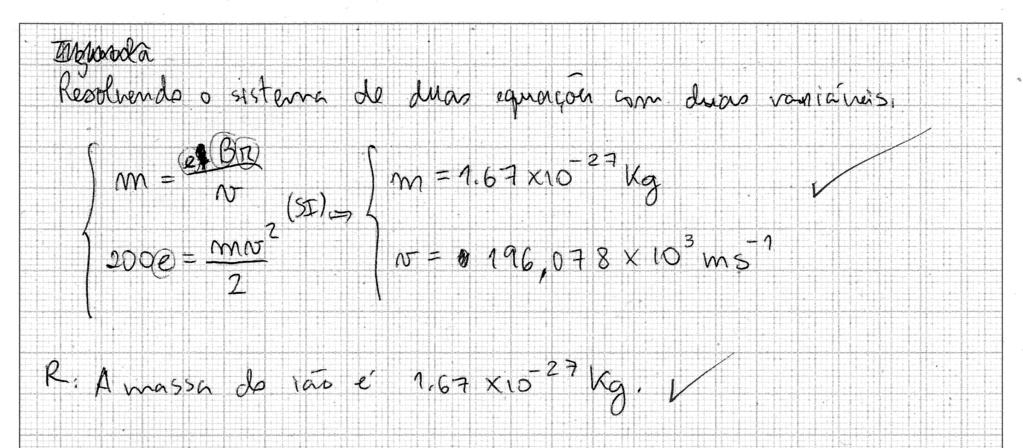 Resolvendo o sistema de duas equações com duas variáveis.
m = eBr/v
200e = mv²/2
(SI) ⇒
m = 1.67 × 10⁻²⁷ Kg
v = 196,078 × 10³ ms⁻¹
R: A massa do ião é 1.67 × 10⁻²⁷ Kg.